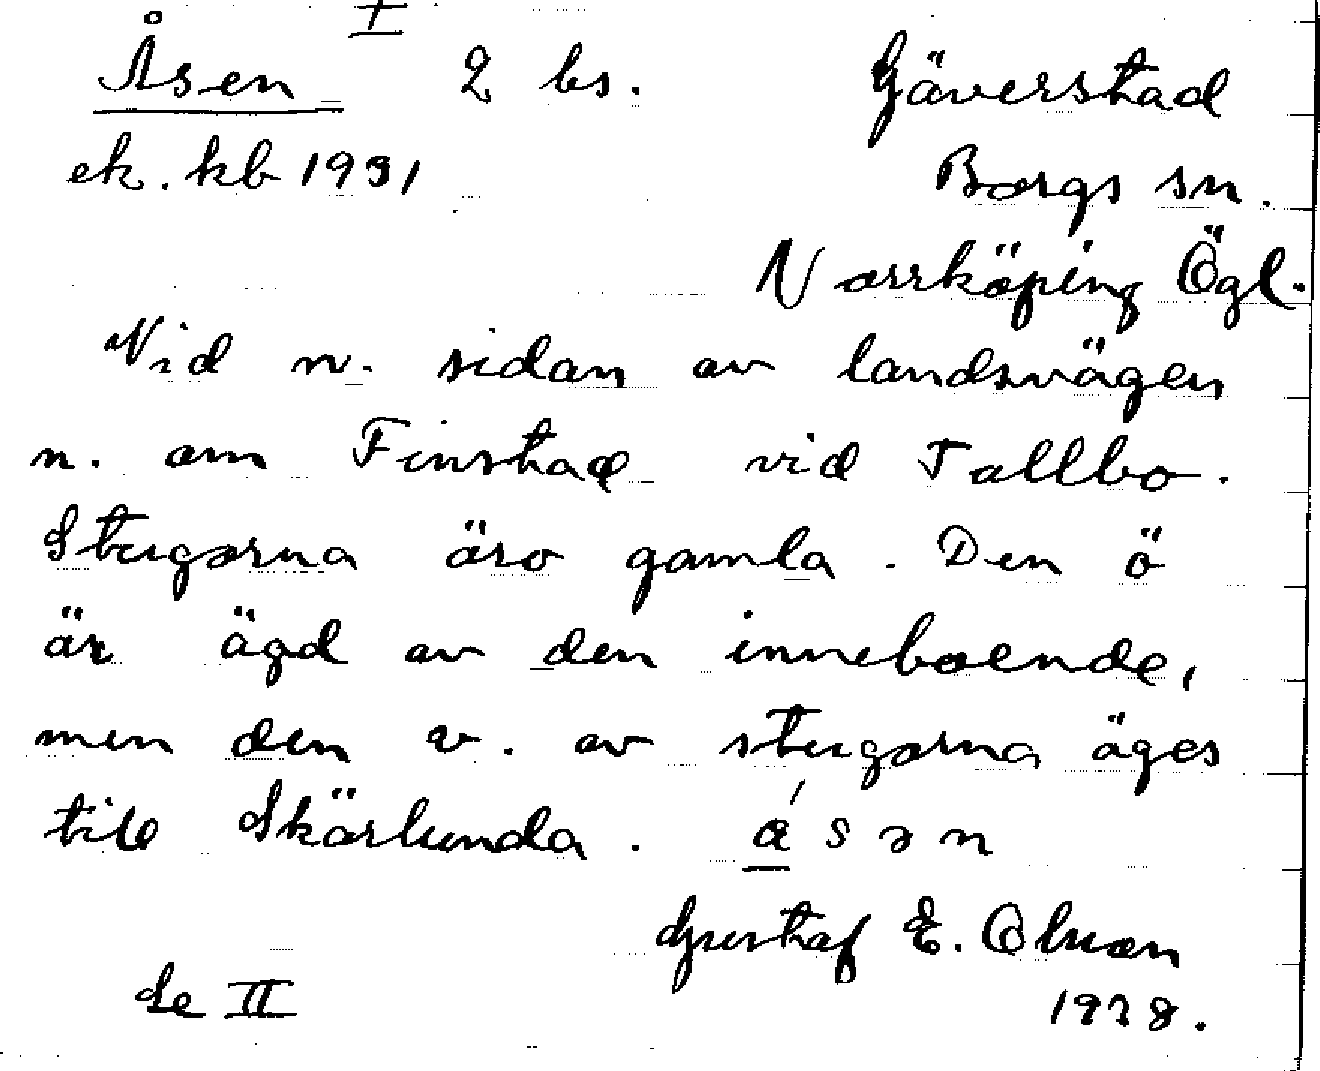 I
Åsen 2 bs. Gäverstad
ek. kb 1931 Borgs sn.
Norrköping Ögl.
Vid n. sidan av landsvägen
n. om Finstad vid Tallbo.
Stugorna äro gamla. Den ö
är ägd av den inneboende,
men den v. av stugorna äges
till Skärlunda. ásən
Gustaf E. Olsson
Se II 1938.